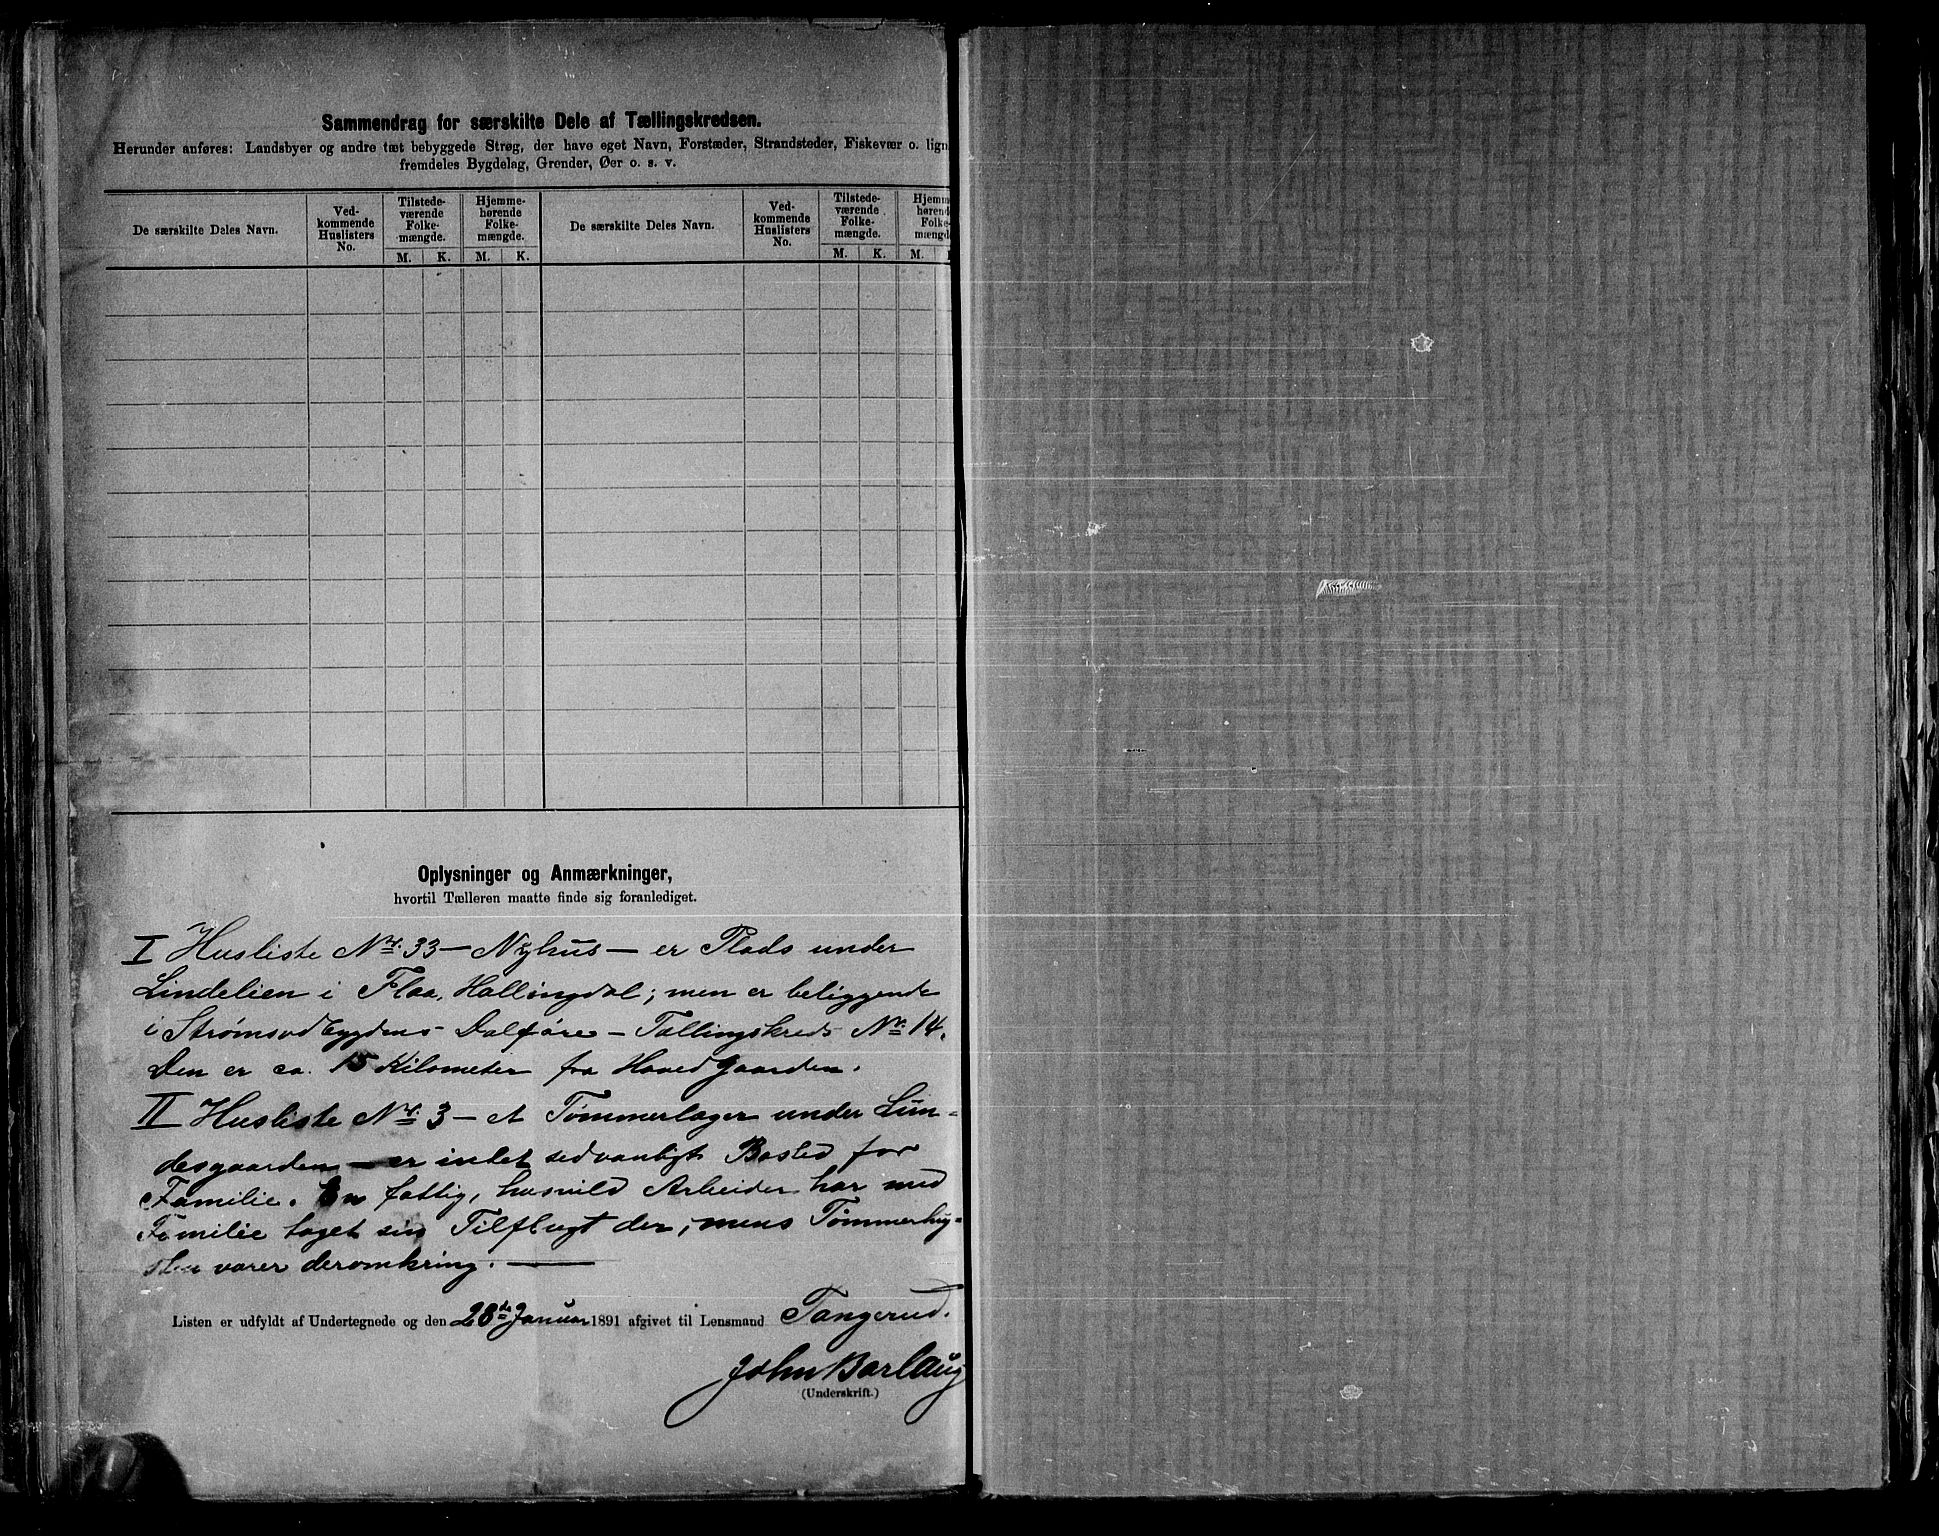 Sammendrag for særskilte Dele af Tællingskredsen.
Herunder anføres: Landsbyer og andre tæt bebyggede Strøg, der have eget Navn, Forstæder, Strandsteder, Fiskevær o. lign
fremdeles Bygdelag, Grender, Øer o. s. v.
De særskilte Deles Navn.
Ved-
kommende
Huslisters
No.
Tilstede-
værende
Folke-
mængde.
M. K.
Hjemme-
hørende
Folke-
mængde.
M. K.
De særskilte Deles Navn.
Ved-
kommende
Huslisters
No.
Tilstede-
værende
Folke-
mængde.
M. K.
Hjemm
hørend
Folke
mængd
M.
Oplysninger og Anmærkninger,
hvortil Tælleren maatte finde sig foranlediget.
I Husliste Nr. 33 — Nyhus — er Plads under
Lindelien i Flaa, Hallingdal; men er beliggende
i Strømsodbygdens Dalføre — Tællingskreds Nr. 14.
Den er ca. 15 Kilometer fra Hovedgaarden.
II Husliste Nr. 3 — et Tømmerlager under Lun-
desgaarden — er intet sedvanligt Bosted for
Familie. En fattig, husvild Arbeider har med
Familie taget sin Tilflugt der, mens Tømmerhug-
sten varer deromkring. —
Listen er udfyldt af Undertegnede og den 28de Januar 1891 afgivet til Lensmand Tangerud.
John Barlaug
(Underskrift.)